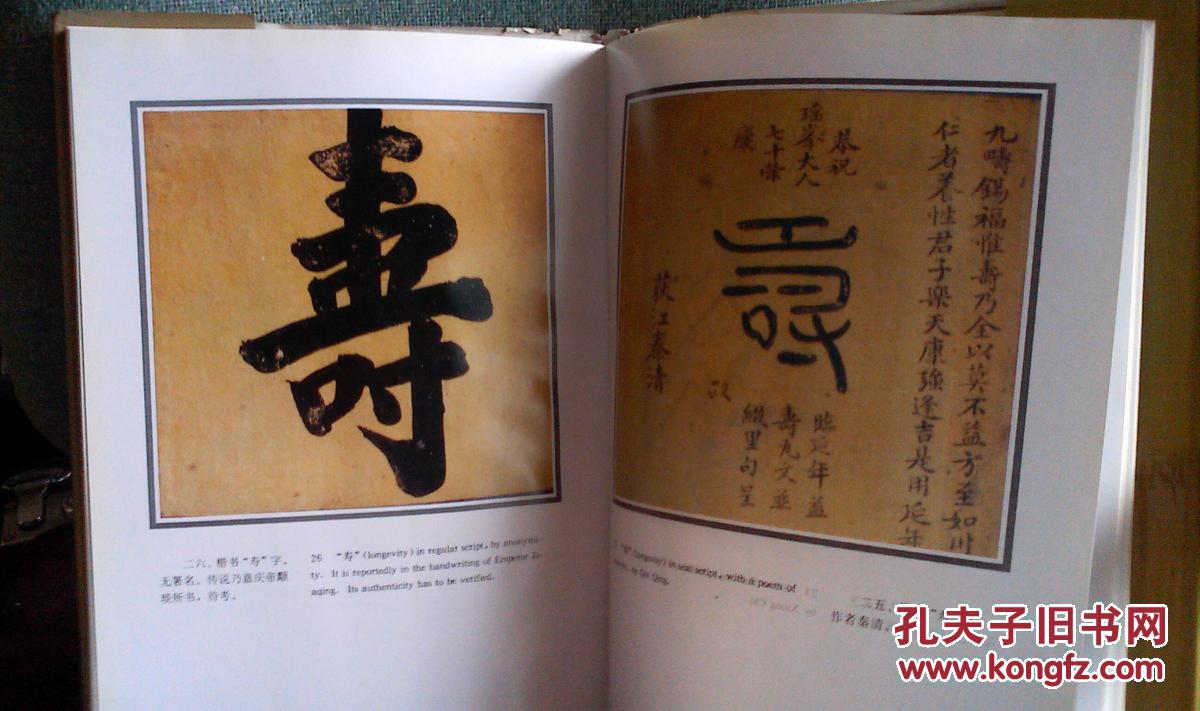 壽
二六、楷书“寿”字，
无署名。传说乃嘉庆帝颙
琰所书，待考。
26 “寿”(longevity) in regular script, by anonymi-
ty. It is reportedly in the handwriting of Emperor Ji-
aqing. Its authenticity has to be verified.
九疇錫福惟壽乃全以莫不益方至如川
仁者養性君子樂天康強逢吉是用延年
恭祝
瑶峯大人
七十榮
慶
壽
臨延年益
壽瓦文並
綴里句呈
荻江秦清
(longevity) in seal script, with a poem of
by Qin Qing.
三五、
作者秦清，
孔夫子旧书网
www.kongfz.com